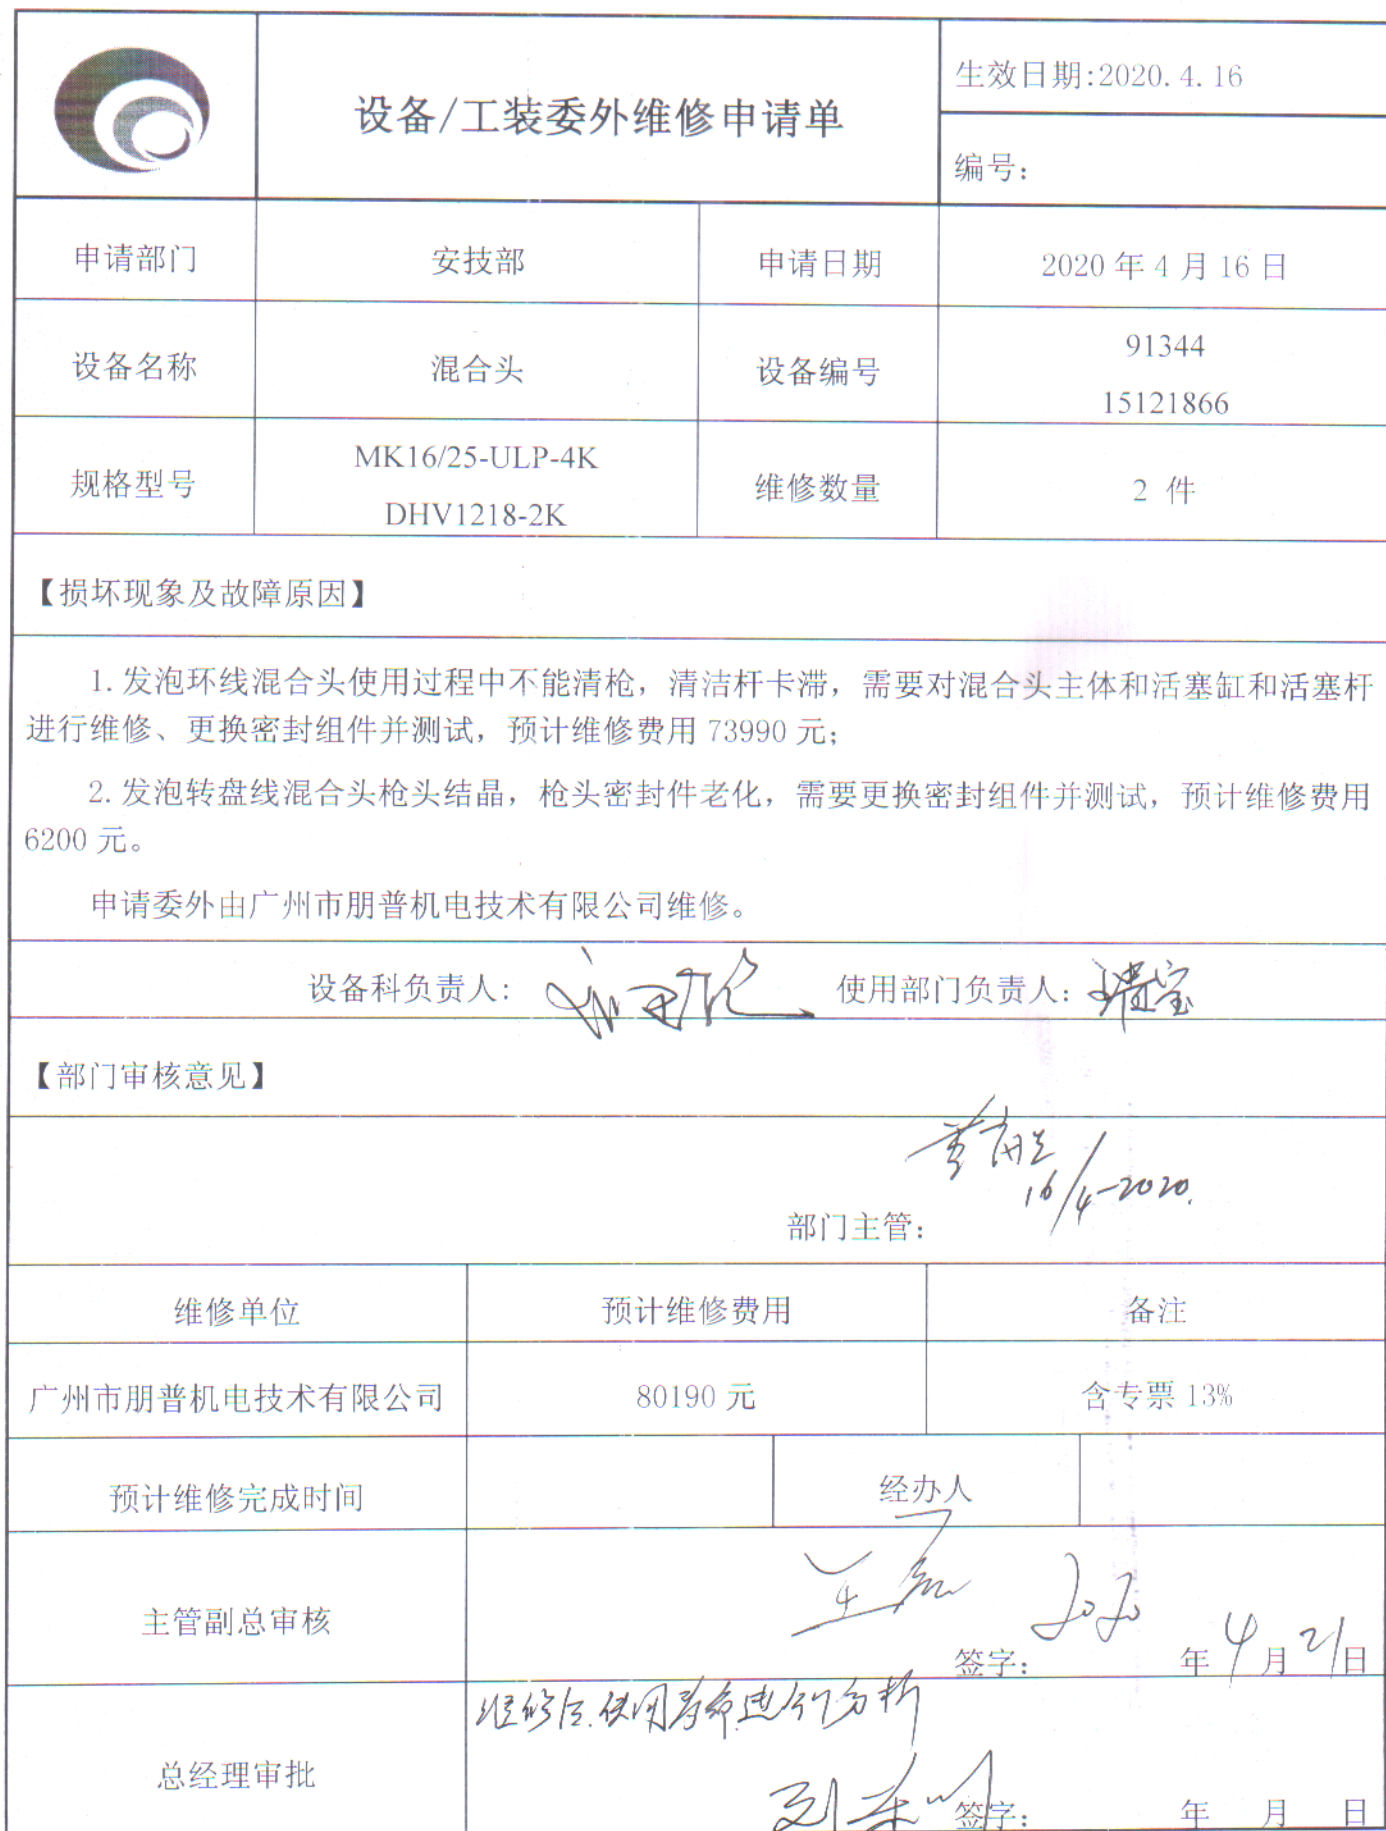 设备/工装委外维修申请单
生效日期:2020.4.16
编号:
申请部门 安技部 申请日期 2020 年 4 月 16 日
设备名称 混合头 设备编号 91344
15121866
规格型号 MK16/25-ULP-4K 维修数量 2 件
DHV1218-2K
【损坏现象及故障原因】
1.发泡环线混合头使用过程中不能清枪，清洁杆卡滞，需要对混合头主体和活塞缸和活塞杆
进行维修、更换密封组件并测试，预计维修费用 73990 元；
2.发泡转盘线混合头枪头结晶，枪头密封件老化，需要更换密封组件并测试，预计维修费用
6200 元。
申请委外由广州市朋普机电技术有限公司维修。
设备科负责人: 使用部门负责人:
【部门审核意见】
16/4-2020.
部门主管:
维修单位 预计维修费用 备注
广州市朋普机电技术有限公司 80190 元 含专票 13%
预计维修完成时间 经办人
主管副总审核 签字: 2020 年 4 月 21 日
维修后.使用寿命进行分析
总经理审批 签字: 年 月 日